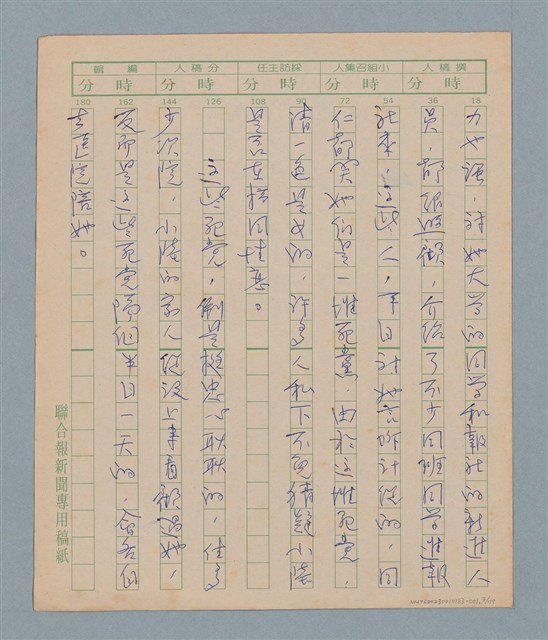 撰稿人 小組召集人 採訪主任 分稿人 編輯
時 分 時 分 時 分 時 分 時 分
18 36 54 72 90 108 126 144 162 180
力也強，對她大學的同學和報社的新進人
員，都很照顧，介紹了不少同班同學進報
社來，這些人，平日對她言聽計從的，同
仁都笑她們是一堆死黨，由於這堆死黨，
清一色是女的，許多人私下不免猜疑小陸
是否在搞同性戀。
這些死黨，倒是挺忠心耿耿的，住多
少次院，小陸的家人從沒上來看顧過她，
反而是這些死黨隔個半日一天的，會各自
去醫院陪她。
聯合報新聞專用稿紙